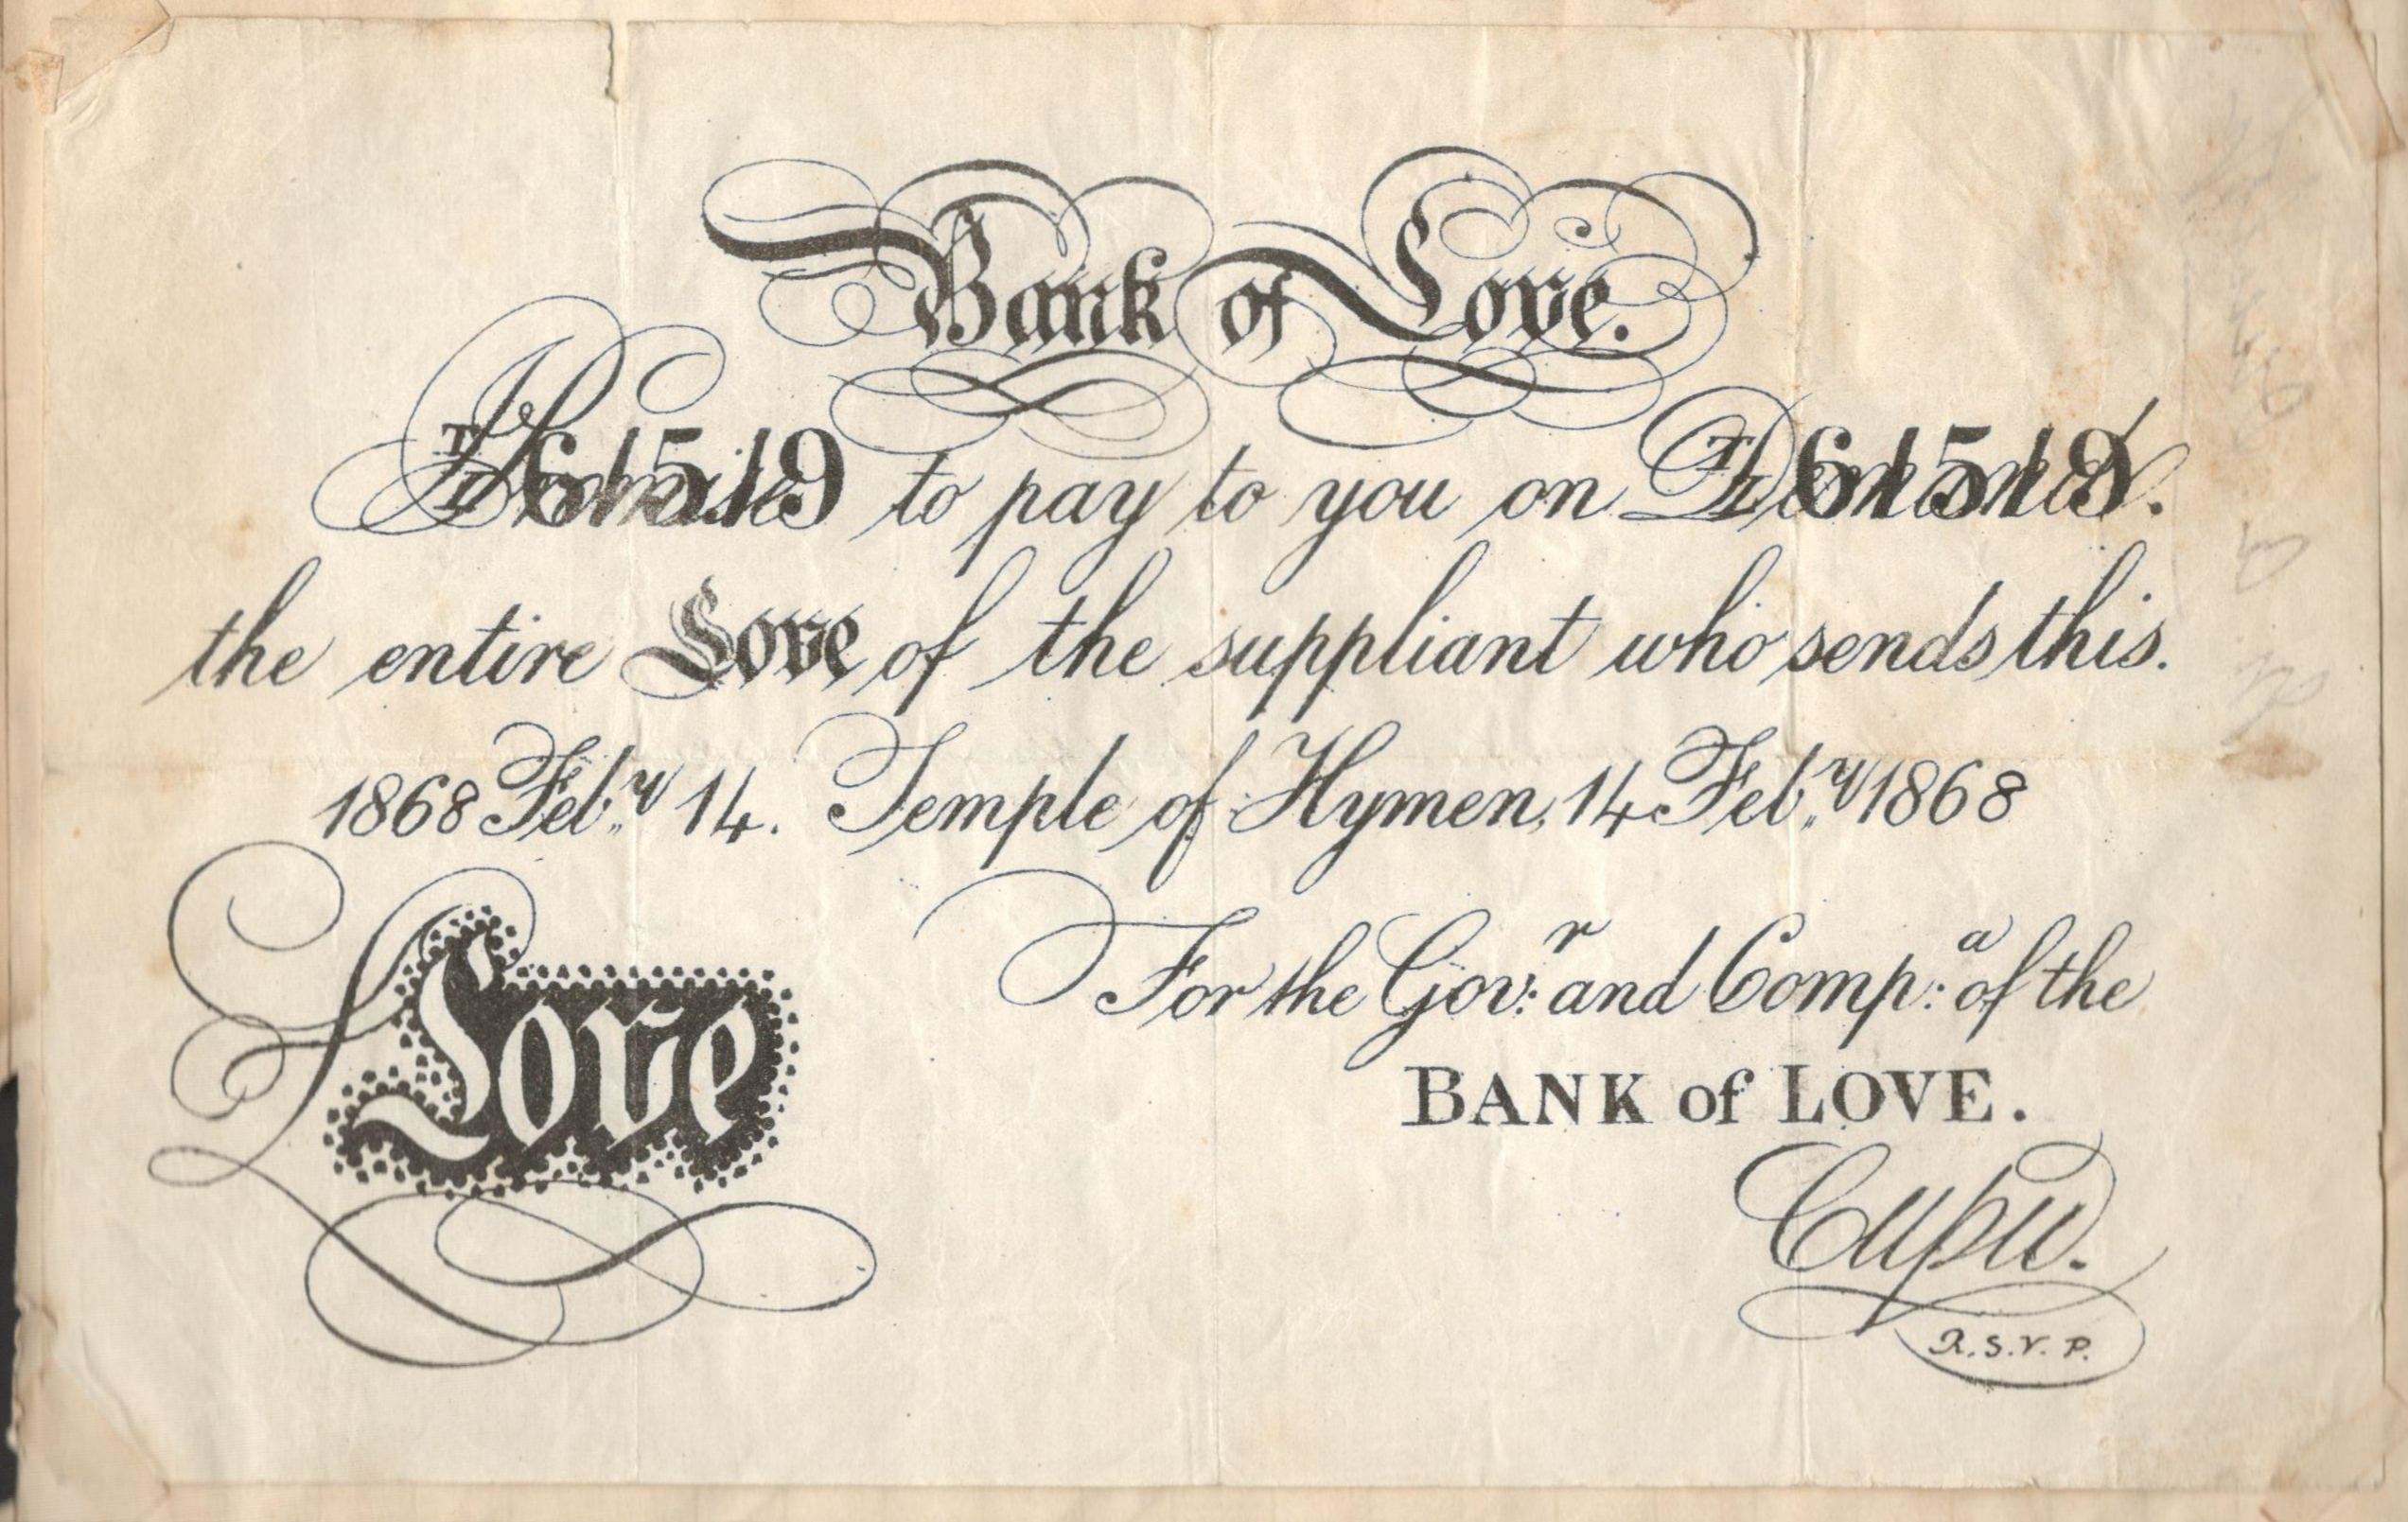 Bank of Love.
I Promise to pay to you on Demand.
T/L 61519 T/L 61519
the entire Love of the suppliant who sends this.
1868 Feb.ry 14. Temple of Hymen, 14 Feb.ry 1868
For the Gov:r and Comp:a of the
BANK of LOVE.
Love
Cupid.
R.S.V.P.